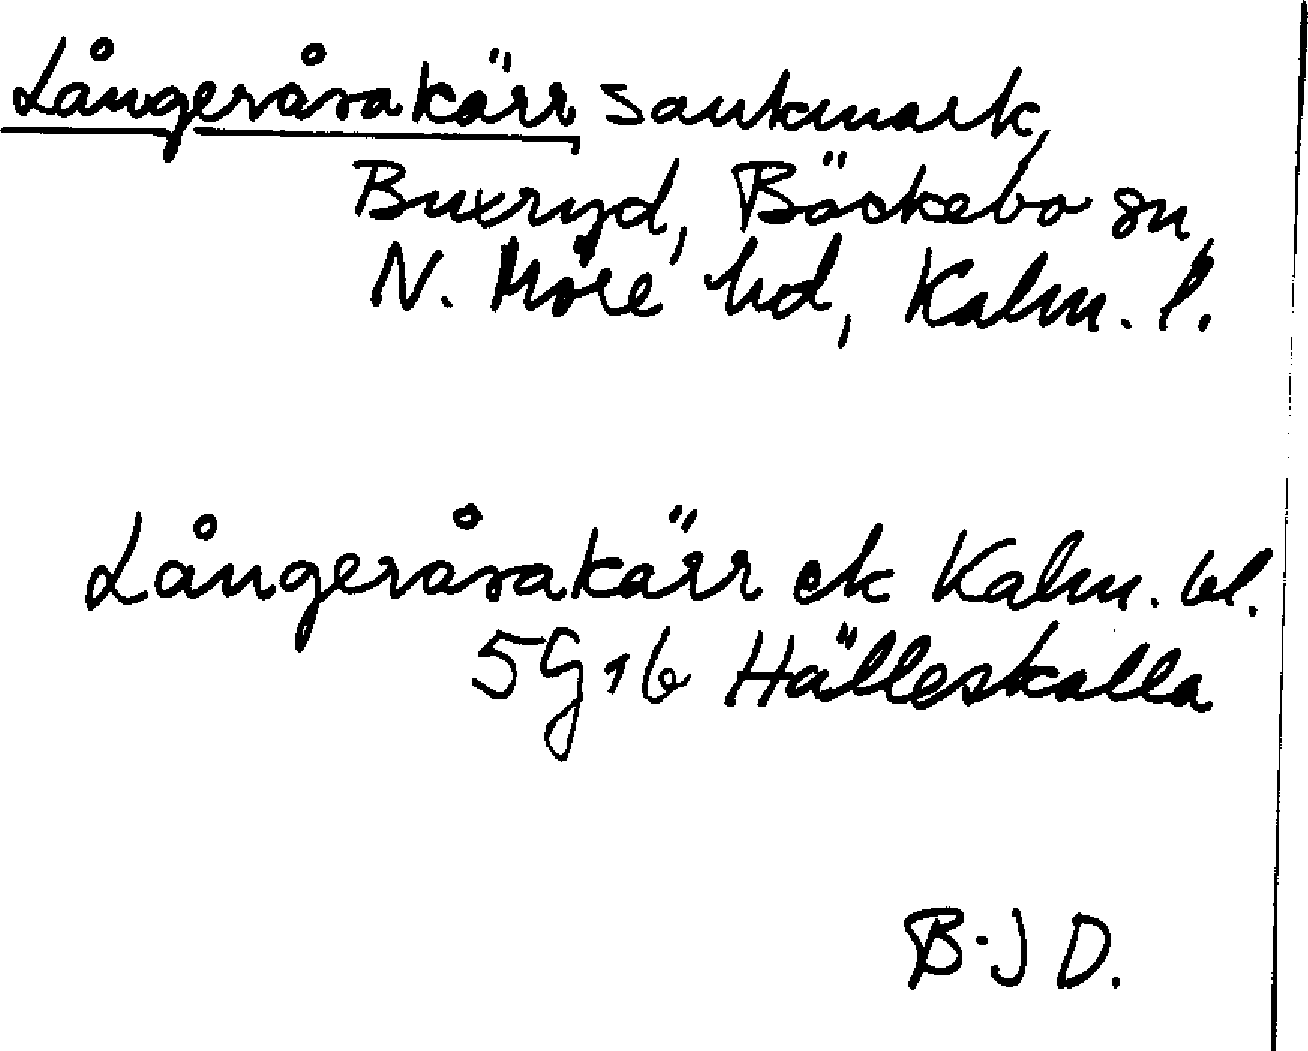 Långeråsakärr sankmark,
Buxryd, Bäckebo sn,
N. Möre hd, Kalm. l.
Långeråsakärr ek Kalm. bl.
5G1b Hälleskalla
B-J D.